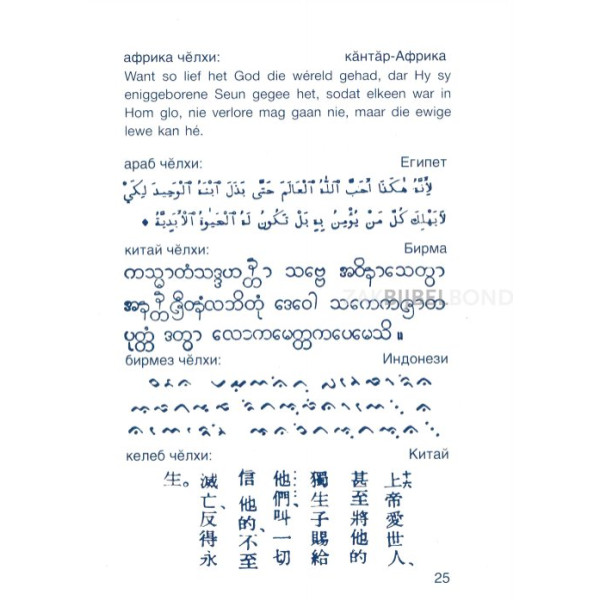 африка чӗлхи: кӑнтӑр-Африка
Want so lief het God die wéreld gehad, dar Hy sy
eniggeborene Seun gegee het, sodat elkeen war in
Hom glo, nie verlore mag gaan nie, maar die ewige
lewe kan hé.
араб чӗлхи: Египет
لِأَنَّهُ هٰكَذَا أَحَبَّ ٱللّٰهُ ٱلْعَالَمَ حَتَّى بَذَلَ ٱبْنَهُ ٱلْوَحِيدَ لِكَيْ
لَا يَهْلِكَ كُلُّ مَنْ يُؤْمِنُ بِهِ بَلْ تَكُونُ لَهُ ٱلْحَيٰوةُ ٱلْأَبَدِيَّةُ •
китай чӗлхи: Бирма
ကသ္မာတံသဒ္ဒဟန္တာ သဗ္ဗေ အဝိနာသေတွာ
လဘိတုံ ဒေဝေါ
ပုတ္တံ ဒတွာ လောကမေတ္တကပေမေသိ။
ZAKBIJBELBOND
бирмез чӗлхи: Индонези
келеб чӗлхи: Китай
十六 上帝愛世人、
甚至將他的
獨生子賜給
他們、叫一切
信他的、不至
滅亡、反得永
生。
25